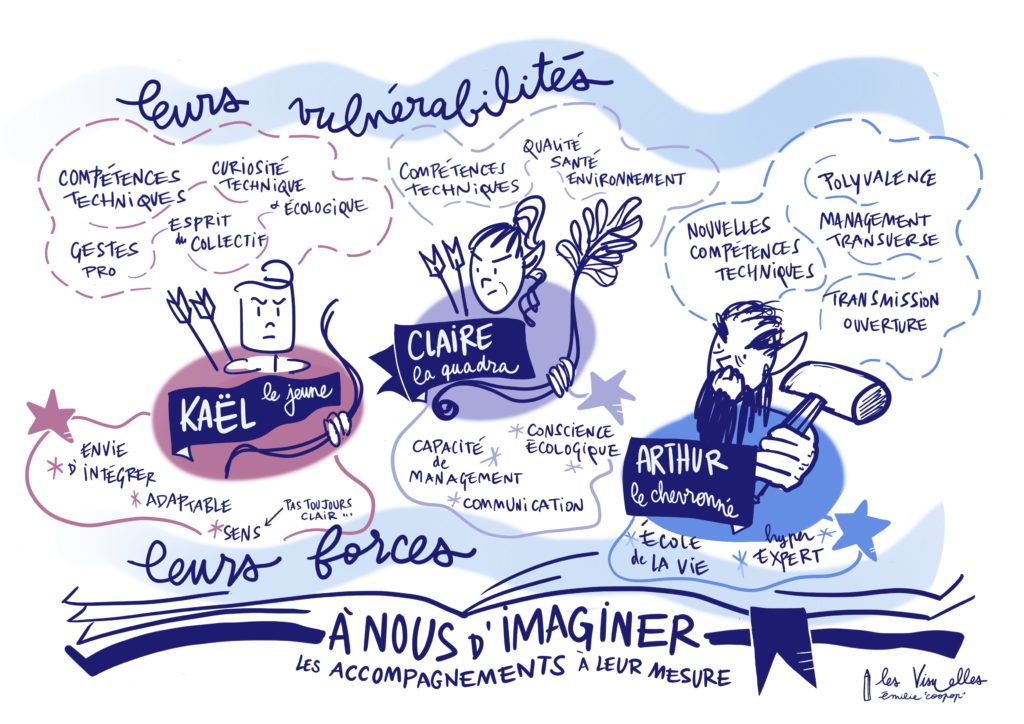 leurs vulnérabilités
COMPÉTENCES
TECHNIQUES
CURIOSITÉ
TECHNIQUE
& ÉCOLOGIQUE
GESTES
PRO
ESPRIT
du COLLECTIF
COMPÉTENCES
TECHNIQUES
QUALITÉ
SANTÉ
ENVIRONNEMENT
NOUVELLES
COMPÉTENCES
TECHNIQUES
POLYVALENCE
MANAGEMENT
TRANSVERSE
TRANSMISSION
OUVERTURE
KAËL le jeune
CLAIRE
la quadra
ARTHUR
le chevronné
ENVIE
D'INTÉGRER
ADAPTABLE
SENS
PAS TOUJOURS
CLAIR...
CAPACITÉ
de
MANAGEMENT
CONSCIENCE
ÉCOLOGIQUE
COMMUNICATION
ÉCOLE
de LA VIE
hyper
EXPERT
leurs forces
À NOUS D'IMAGINER
LES ACCOMPAGNEMENTS À LEUR MESURE
les Visuelles
émilie "coopop"